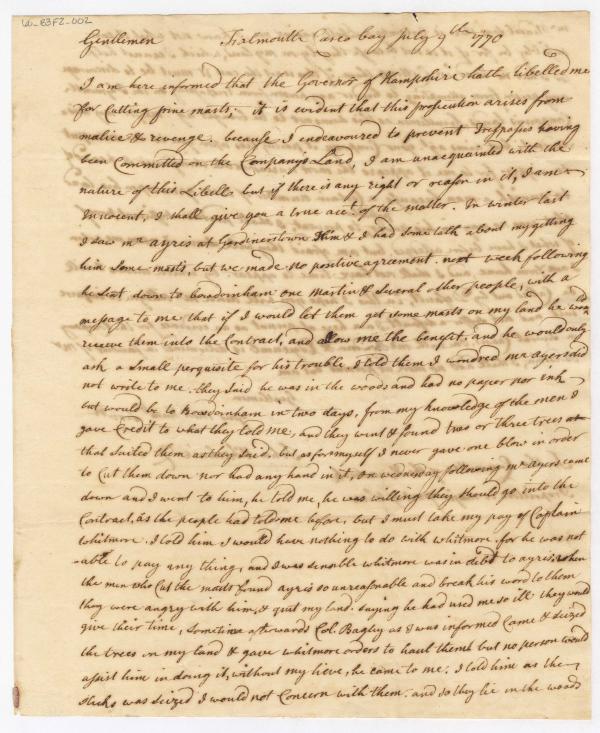 Lb-83F2-002
Gentlemen Falmouth Casco bay July 9th 1770
I am here informed that the Governor of Hampshire hath libelled me
for Cutting pine masts; it is evident that this prosecution arises from
malice & revenge. because I endeavoured to prevent Trespasses having
been Committed on the Companys Land, I am unacquainted with the
nature of this Libelle but if there is any right or reason in it, I am
Innocent, I shall give you a true acct. of the matter. In winter last
I saw mr ayris at Gardinerstown Him & I had some talk about my getting
him Some masts, but we made no positive agreement. next week following
he Sent down to bowdoinham one Martin & Several other people, with a
message to me that if I would let them get some masts on my land he would
receive them into the Contract, and allow me the benefit, and he would only
ask a Small perquisite for his trouble, I told them I wondred mr Ayers did
not write to me. they said he was in the woods and had no paper nor ink
but would be to Bowdoinham in two days, from my knowledge of the men I
gave Credit to what they told me, and they went & found two or three trees
that suited them as they said. but as for myself I never gave one blow in order
to Cut them down nor had any hand in it, on wednesday following mr Ayers came
down and I went to him, he told me, he was willing they should go into the
Contract, as the people had told me before, but I must take my pay of Captain
Whitmore. I told him I would have nothing to do with whitmore. for he was not
able to pay any thing, and I was sensible whitmore was in debt to ayris. when
the men who Cut the masts found ayris so unreasonable and break his word to them
they were angry with him, & quit my land. saying he had used me so ill they would
give their time, Sometime afterwards Col. Bagley as I was informed Came & seized
the trees on my land & gave whitmore orders to haul them but no person would
assist him in doing it, without my lieve, he came to me. I told him as the
sticks was Seized I would not Concern with them. and so they lie in the woods